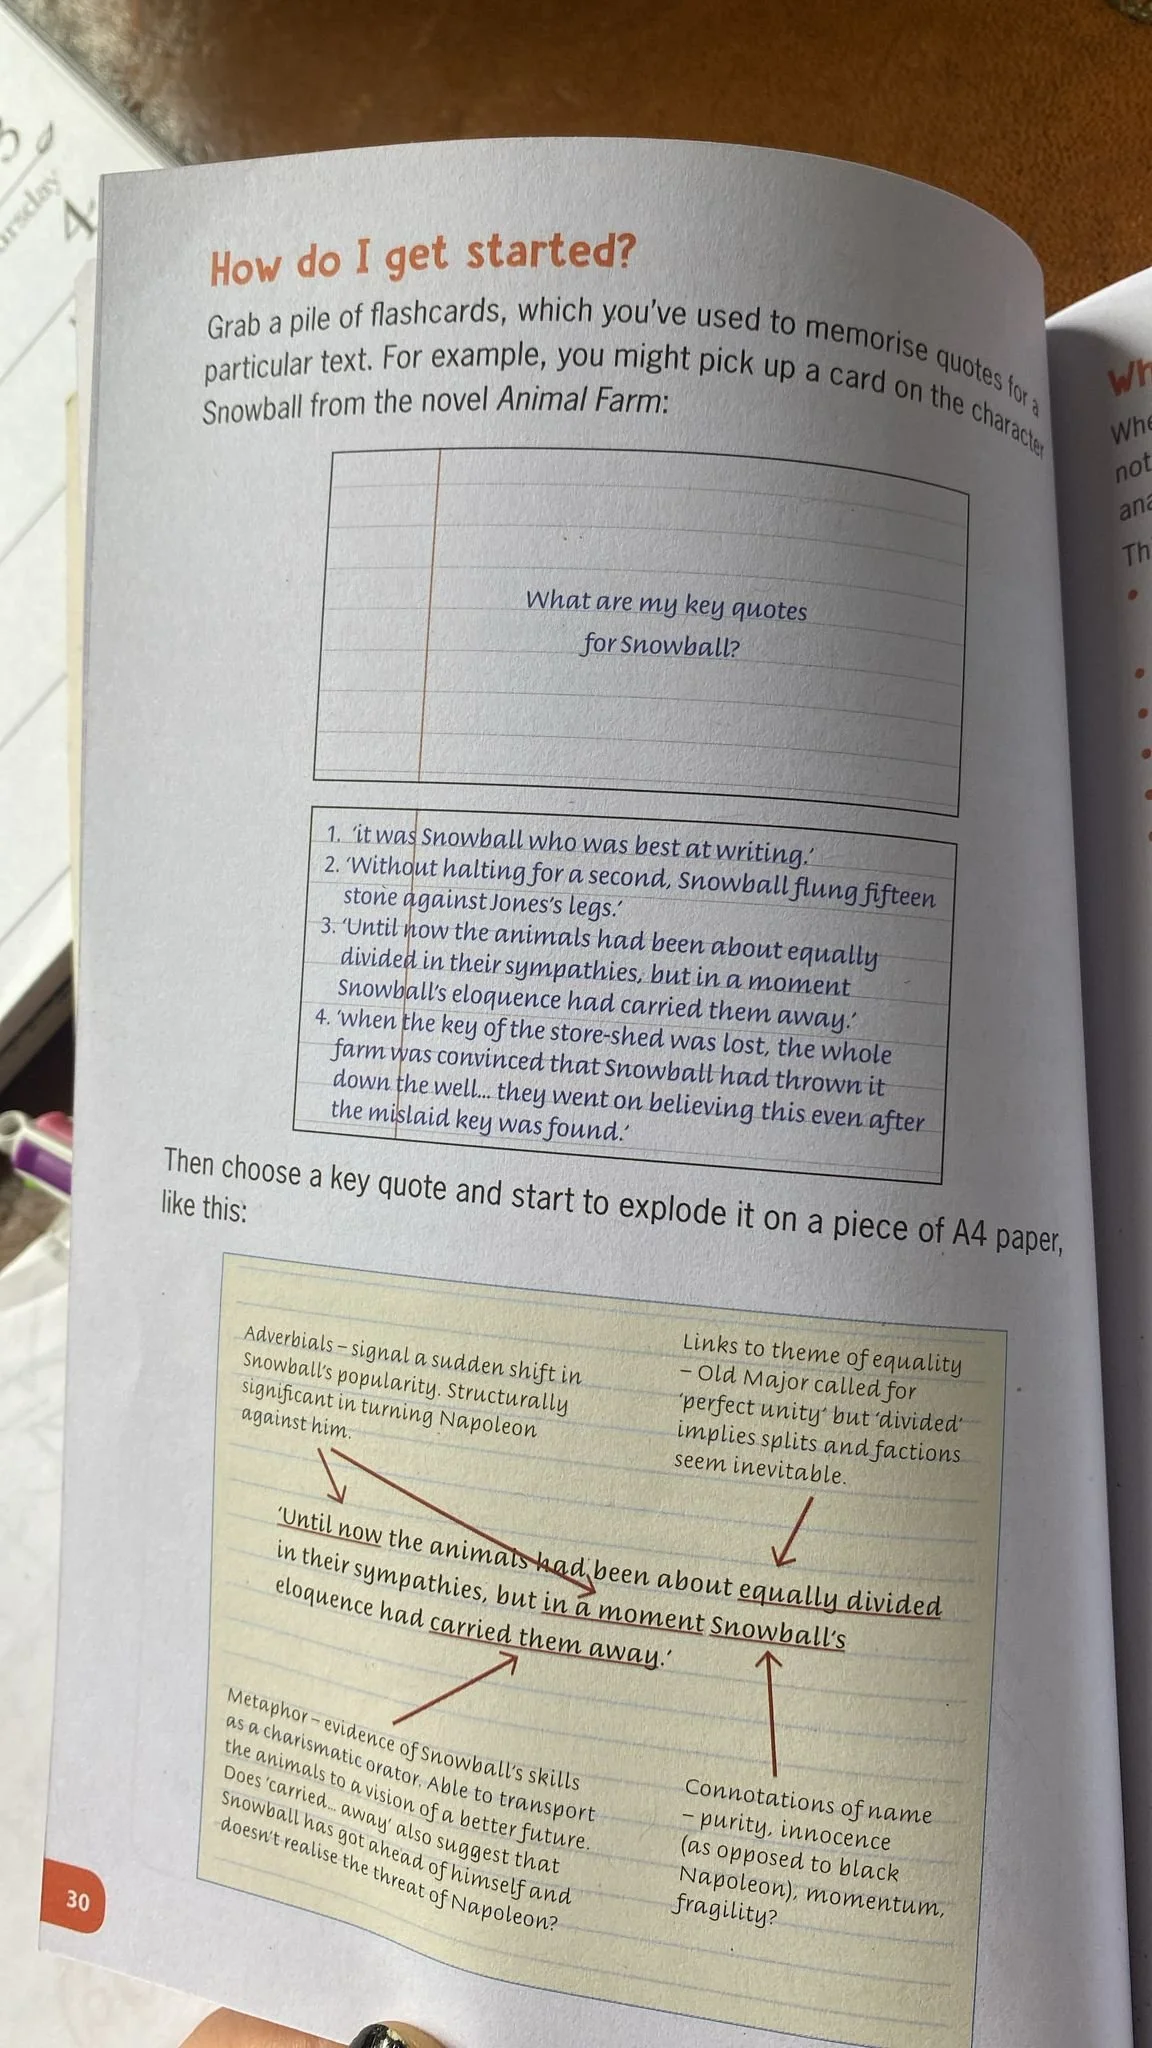 3
ursday
4
How do I get started?
Grab a pile of flashcards, which you've used to memorise quotes for a
particular text. For example, you might pick up a card on the character
Snowball from the novel Animal Farm:
What are my key quotes
for Snowball?
1. 'it was Snowball who was best at writing.'
2. 'Without halting for a second, Snowball flung fifteen
stone against Jones's legs.'
3. 'Until now the animals had been about equally
divided in their sympathies, but in a moment
Snowball's eloquence had carried them away.'
4. 'when the key of the store-shed was lost, the whole
farm was convinced that Snowball had thrown it
down the well... they went on believing this even after
the mislaid key was found.'
Then choose a key quote and start to explode it on a piece of A4 paper,
like this:
Adverbials – signal a sudden shift in
Snowball's popularity. Structurally
significant in turning Napoleon
against him.
Links to theme of equality
– Old Major called for
'perfect unity' but 'divided'
implies splits and factions
seem inevitable.
'Until now the animals had been about equally divided
in their sympathies, but in a moment Snowball's
eloquence had carried them away.'
Metaphor – evidence of Snowball's skills
as a charismatic orator. Able to transport
the animals to a vision of a better future.
Does 'carried... away' also suggest that
Snowball has got ahead of himself and
doesn't realise the threat of Napoleon?
Connotations of name
– purity, innocence
(as opposed to black
Napoleon), momentum,
fragility?
30
Wh
Whe
not
ana
Th